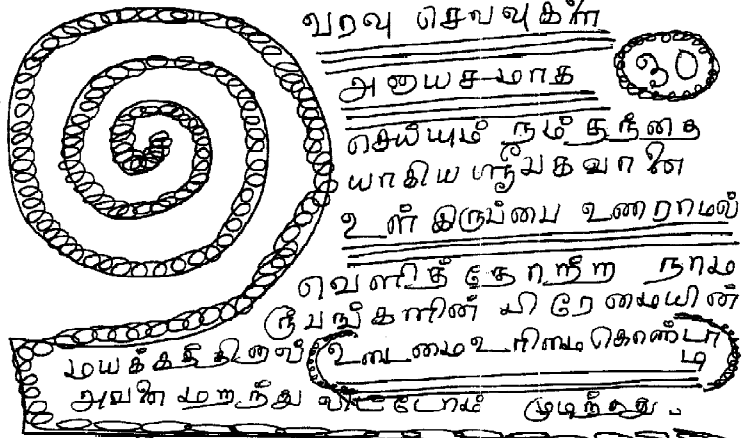 வரவு செலவுகள்
அனாயசமாக
௨௦
செய்யும் நம் தந்தை
யாகிய ஸ்ரீபகவானை
உள் இருப்பை உணராமல்
வெளித் தோற்ற நாம
ரூபங்களின் பிரேமையின்
மயக்கத்தினால் உடைமை உரிமை கொண்டாடி
அவனை மறந்து விட்டோம் முடிந்தது.